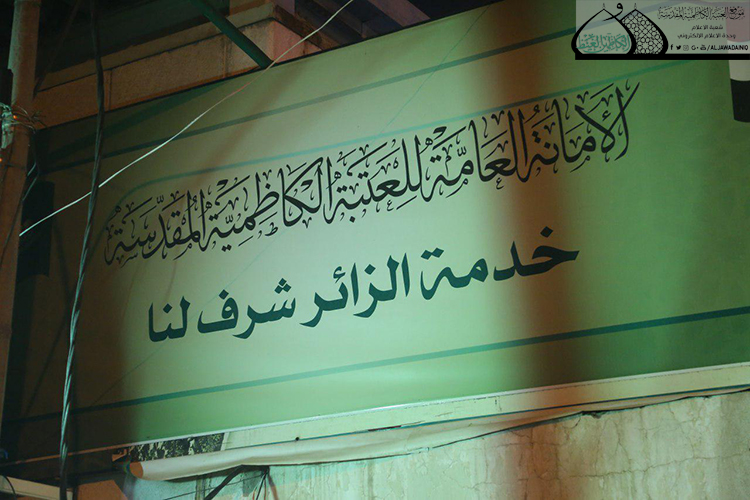 موقع العتبة الكاظمية المقدسة
شعبة الاعلام
وحدة الاعلام الالكتروني
/ALJAWADAINIQ
الأمانة العامّة للعتبة الكاظميّة المقدّسة
خدمة الزائر شرف لنا